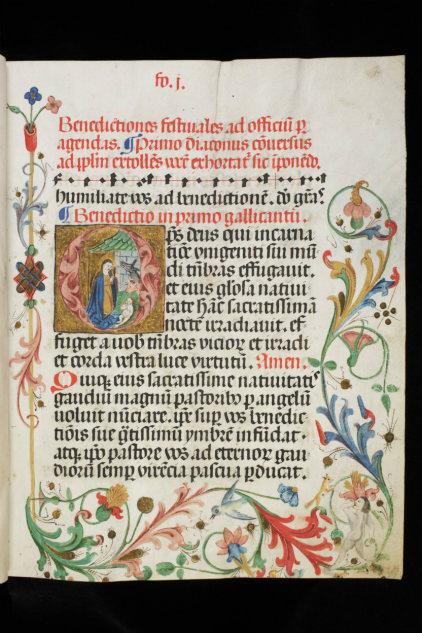 fo. j.
Benedictiones festiuales ad officiū p
agendas. Primo diaconus cōuersus
ad pplm extollēs vocē exhortat sic iponēdo.
humiliate vos ad benedictionē. Do grās
Benedictio in primo gallicantu.
Ops deus qui incarna
tiōe vnigeniti sui mū
di tnbras effugauit.
et eius glosa natiui
tate hāc sacratissimā
noctē irradiauit. ef
fuget a uob tnbras vicior et irradi
et corda vestra luce virtutū. Amen.
Quiq eius sacratissime natiuitatis
gaudiū magnū pastorib p angelū
voluit nūciare. ipe sup vos benedic
tiōis sue gtissimū ymbrē infūdat.
atq ipo pastore vos ad eternor gau
diorū semp virēcia pascua pducat.